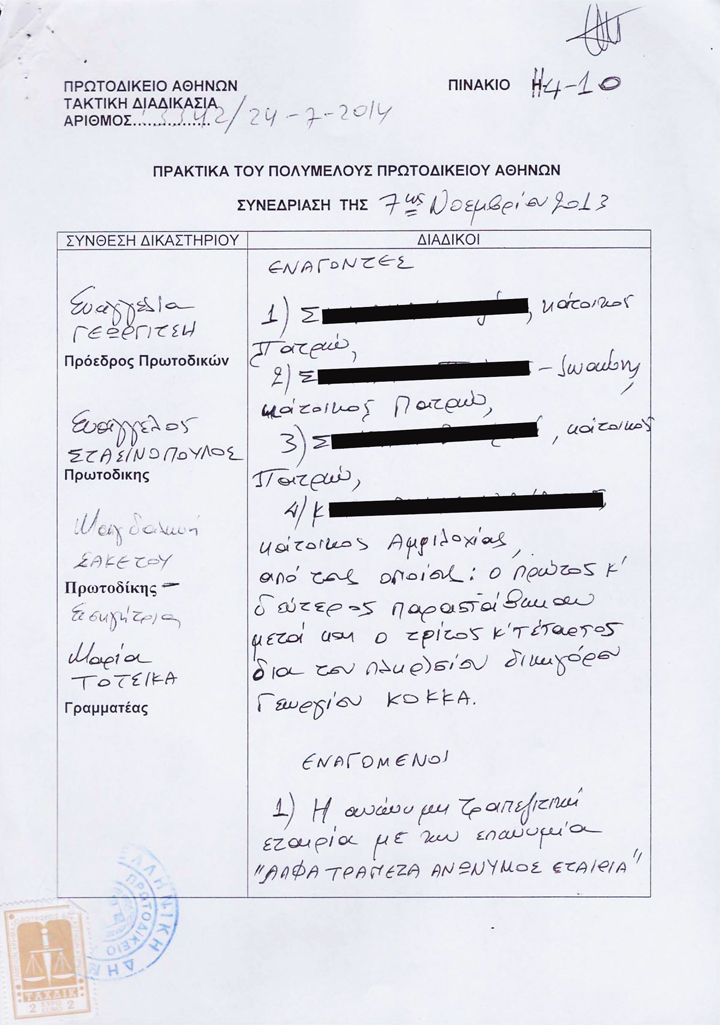 ΠΡΩΤΟΔΙΚΕΙΟ ΑΘΗΝΩΝ
ΤΑΚΤΙΚΗ ΔΙΑΔΙΚΑΣΙΑ
ΑΡΙΘΜΟΣ 3342/24-7-2014
ΠΙΝΑΚΙΟ Η4-10
ΠΡΑΚΤΙΚΑ ΤΟΥ ΠΟΛΥΜΕΛΟΥΣ ΠΡΩΤΟΔΙΚΕΙΟΥ ΑΘΗΝΩΝ
ΣΥΝΕΔΡΙΑΣΗ ΤΗΣ 7ης Νοεμβρίου 2013
ΣΥΝΘΕΣΗ ΔΙΚΑΣΤΗΡΙΟΥ
Ευαγγελία
ΓΕΩΡΓΙΤΣΗ
Πρόεδρος Πρωτοδικών
Ευάγγελος
ΣΤΑΣΙΝΟΠΟΥΛΟΣ
Πρωτοδικης
Μαγδαληνή
ΣΑΚΕΤΟΥ
Πρωτοδίκης –
Εισηγήτρια
Μαρία
ΤΟΤΣΙΚΑ
Γραμματέας
ΔΙΑΔΙΚΟΙ
ΕΝΑΓΟΝΤΕΣ
1) Σ , κάτοικος
Πατρών,
2) Σ - Ιωάννης,
κάτοικος Πατρών,
3) Σ , κάτοικος
Πατρών,
4) Κ
κάτοικος Αμφιλοχίας,
από τους οποίους: ο πρώτος κ'
δεύτερος παραστάθηκαν
μετά και ο τρίτος κ' τέταρτος
δια του πληρεξούσιου δικηγόρου
Γεωργίου ΚΟΚΚΑ.
ΕΝΑΓΟΜΕΝΟΙ
1) Η ανώνυμη τραπεζιτική
εταιρία με την επωνυμία
"ΑΛΦΑ ΤΡΑΠΕΖΑ ΑΝΩΝΥΜΟΣ ΕΤΑΙΡΙΑ"
ΕΛΛΗΝΙΚΗ ΔΗΜ
ΠΡΩΤΟΔΙΚΕΙΟ
ΤΑΧΔΙΚ
2 2